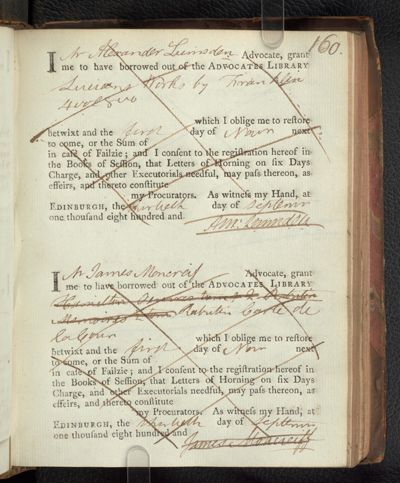 160.
I Mr Alexander Lumsden Advocate, grant
me to have borrowed out of the ADVOCATES LIBRARY
Lucians Works by Franklin
4 vols 8vo
which I oblige me to restore
betwixt and the first day of Novr next
to come, or the Sum of
in case of Failzie; and I consent to the registration hereof in
the Books of Session, that Letters of Horning on six Days
Charge, and other Executorials needful, may pass thereon, as
effeirs, and thereto constitute
my Procurators. As witness my Hand, at
EDINBURGH, the day of Septemr
one thousand eight hundred and
Lumsden
I Mr James Moncreif Advocate, grant
me to have borrowed out of the ADVOCATES LIBRARY
Hamilton
Memoires Rabutin Carte de
la Cour which I oblige me to restore
betwixt and the first day of Novr next
to come, or the Sum of
in case of Failzie; and I consent to the registration hereof in
the Books of Session, that Letters of Horning on six Days
Charge, and other Executorials needful, may pass thereon, as
effeirs, and thereto constitute
my Procurators. As witness my Hand, at
EDINBURGH, the day of Septemr
one thousand eight hundred and
James Moncreiff